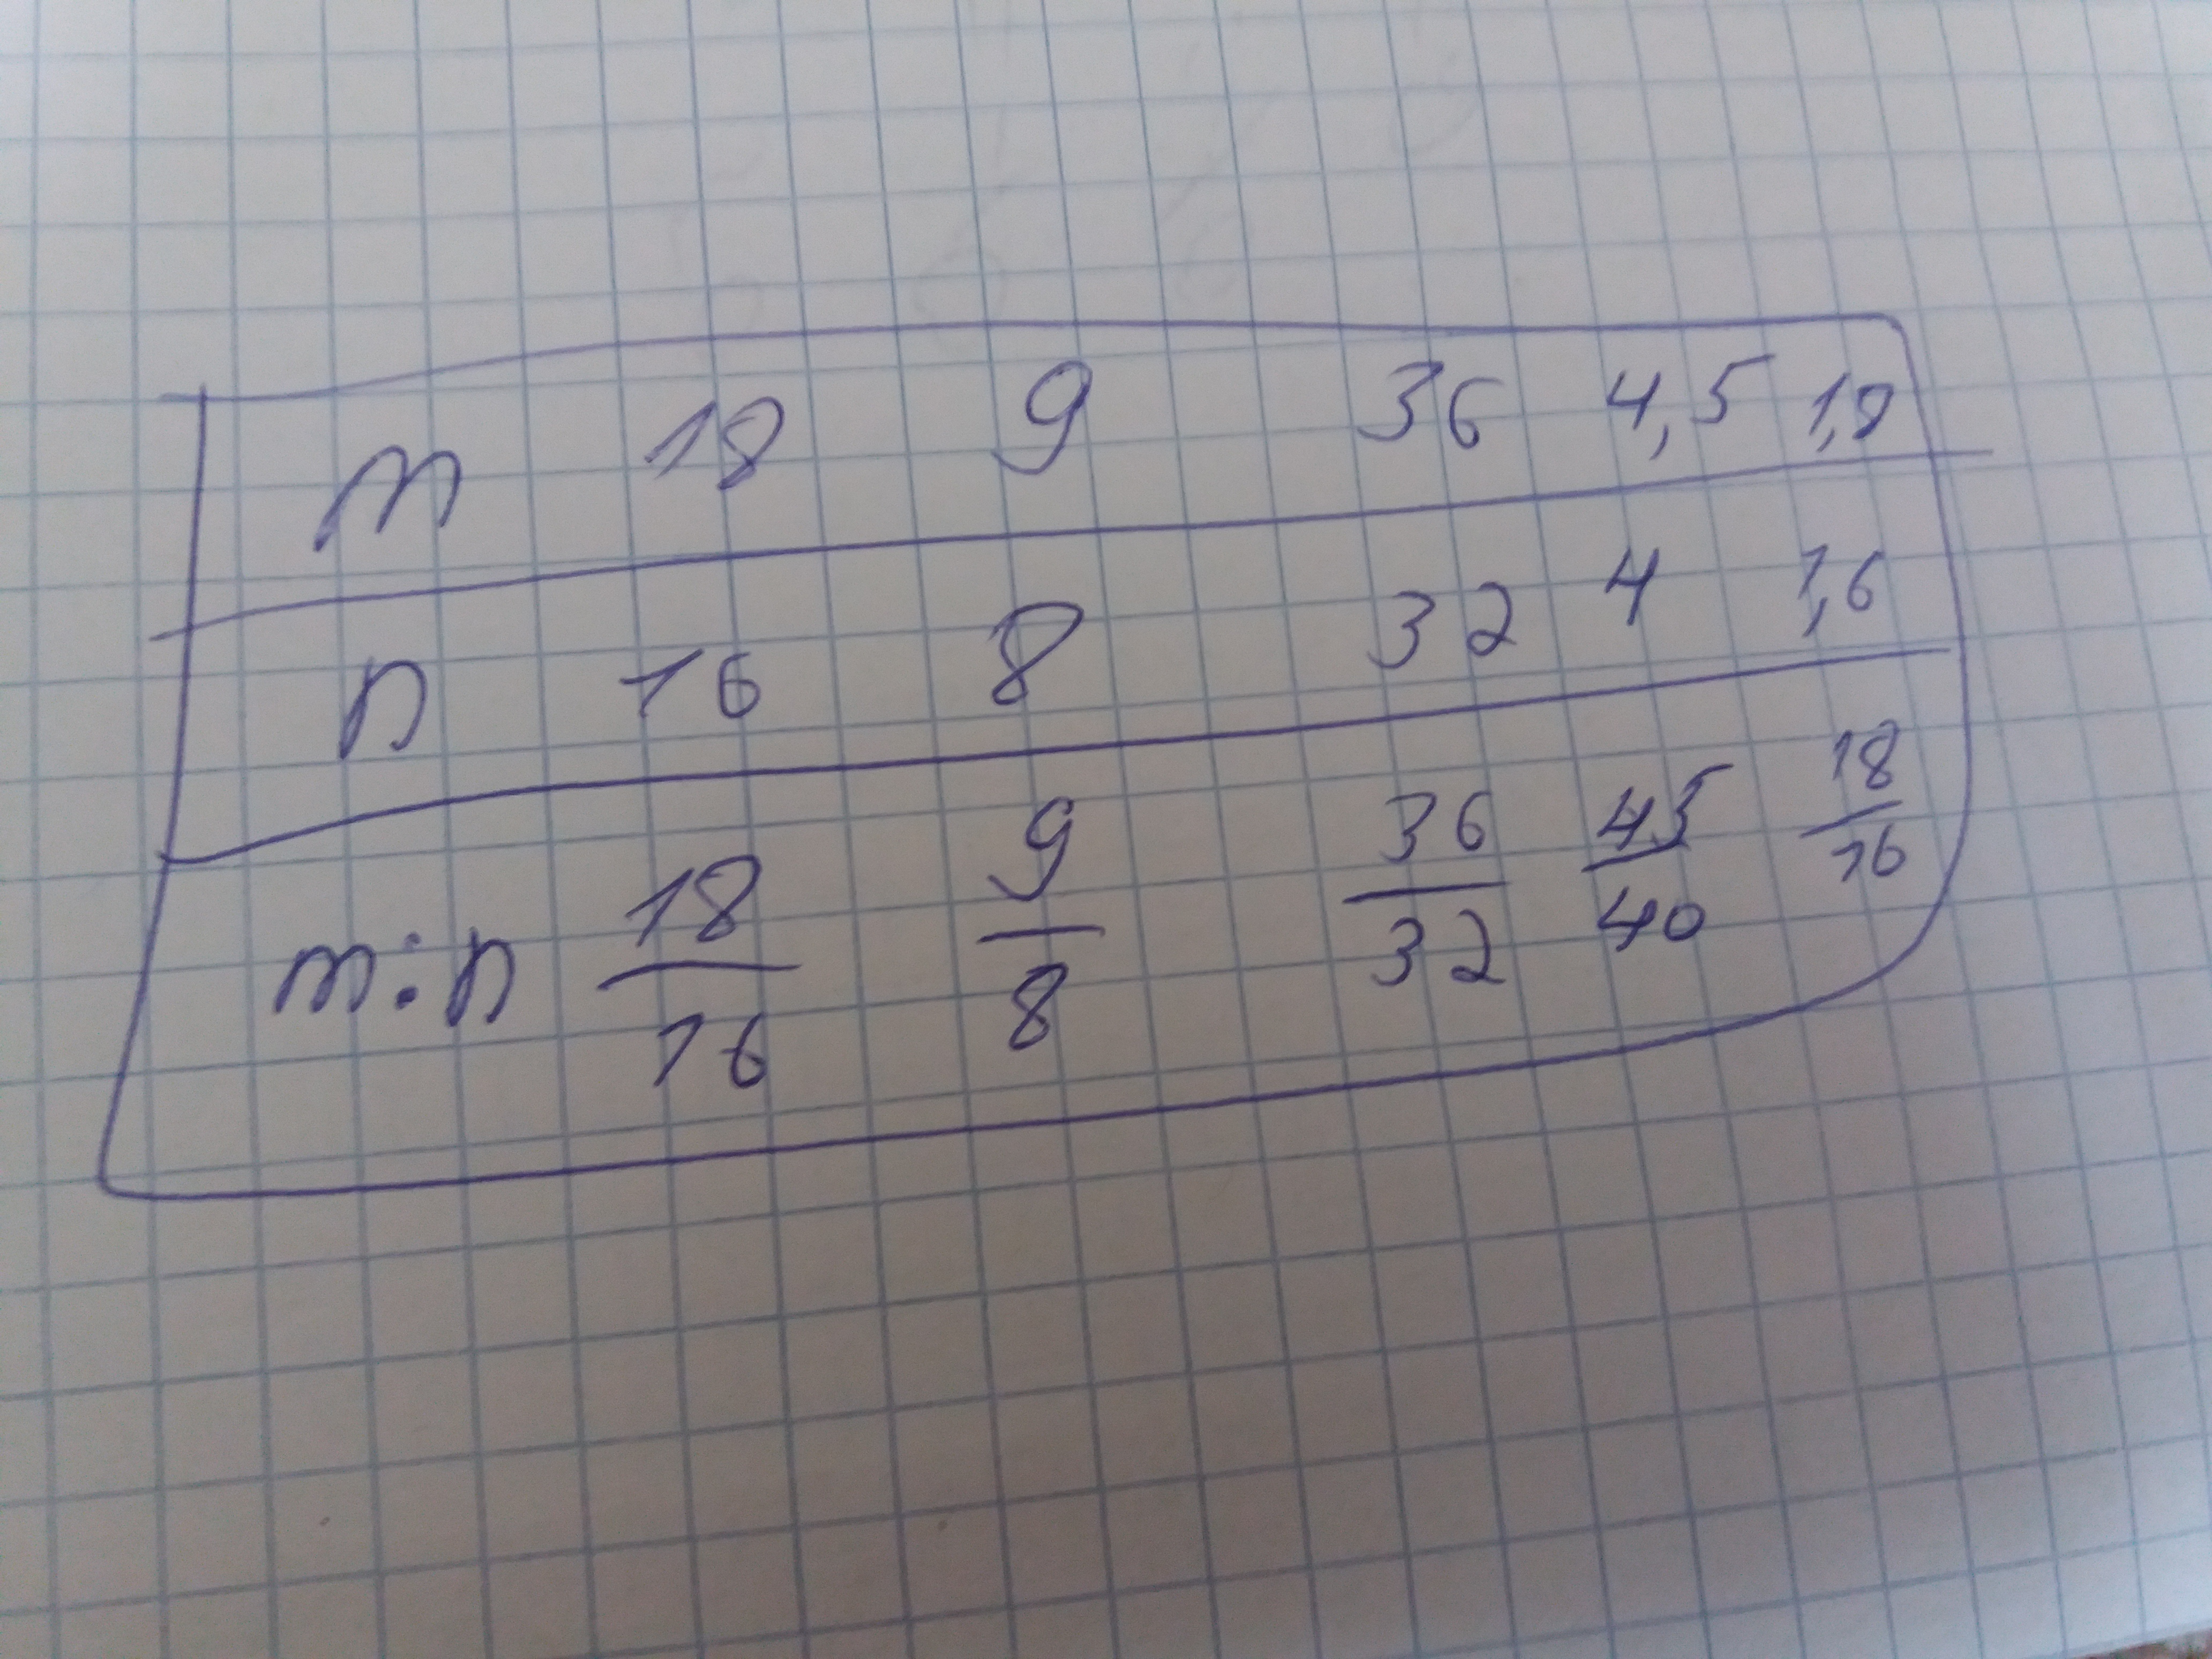 m 18 9 36 4,5 1,8
n 16 8 32 4 1,6
m:n 18/16 9/8 36/32 45/40 18/16